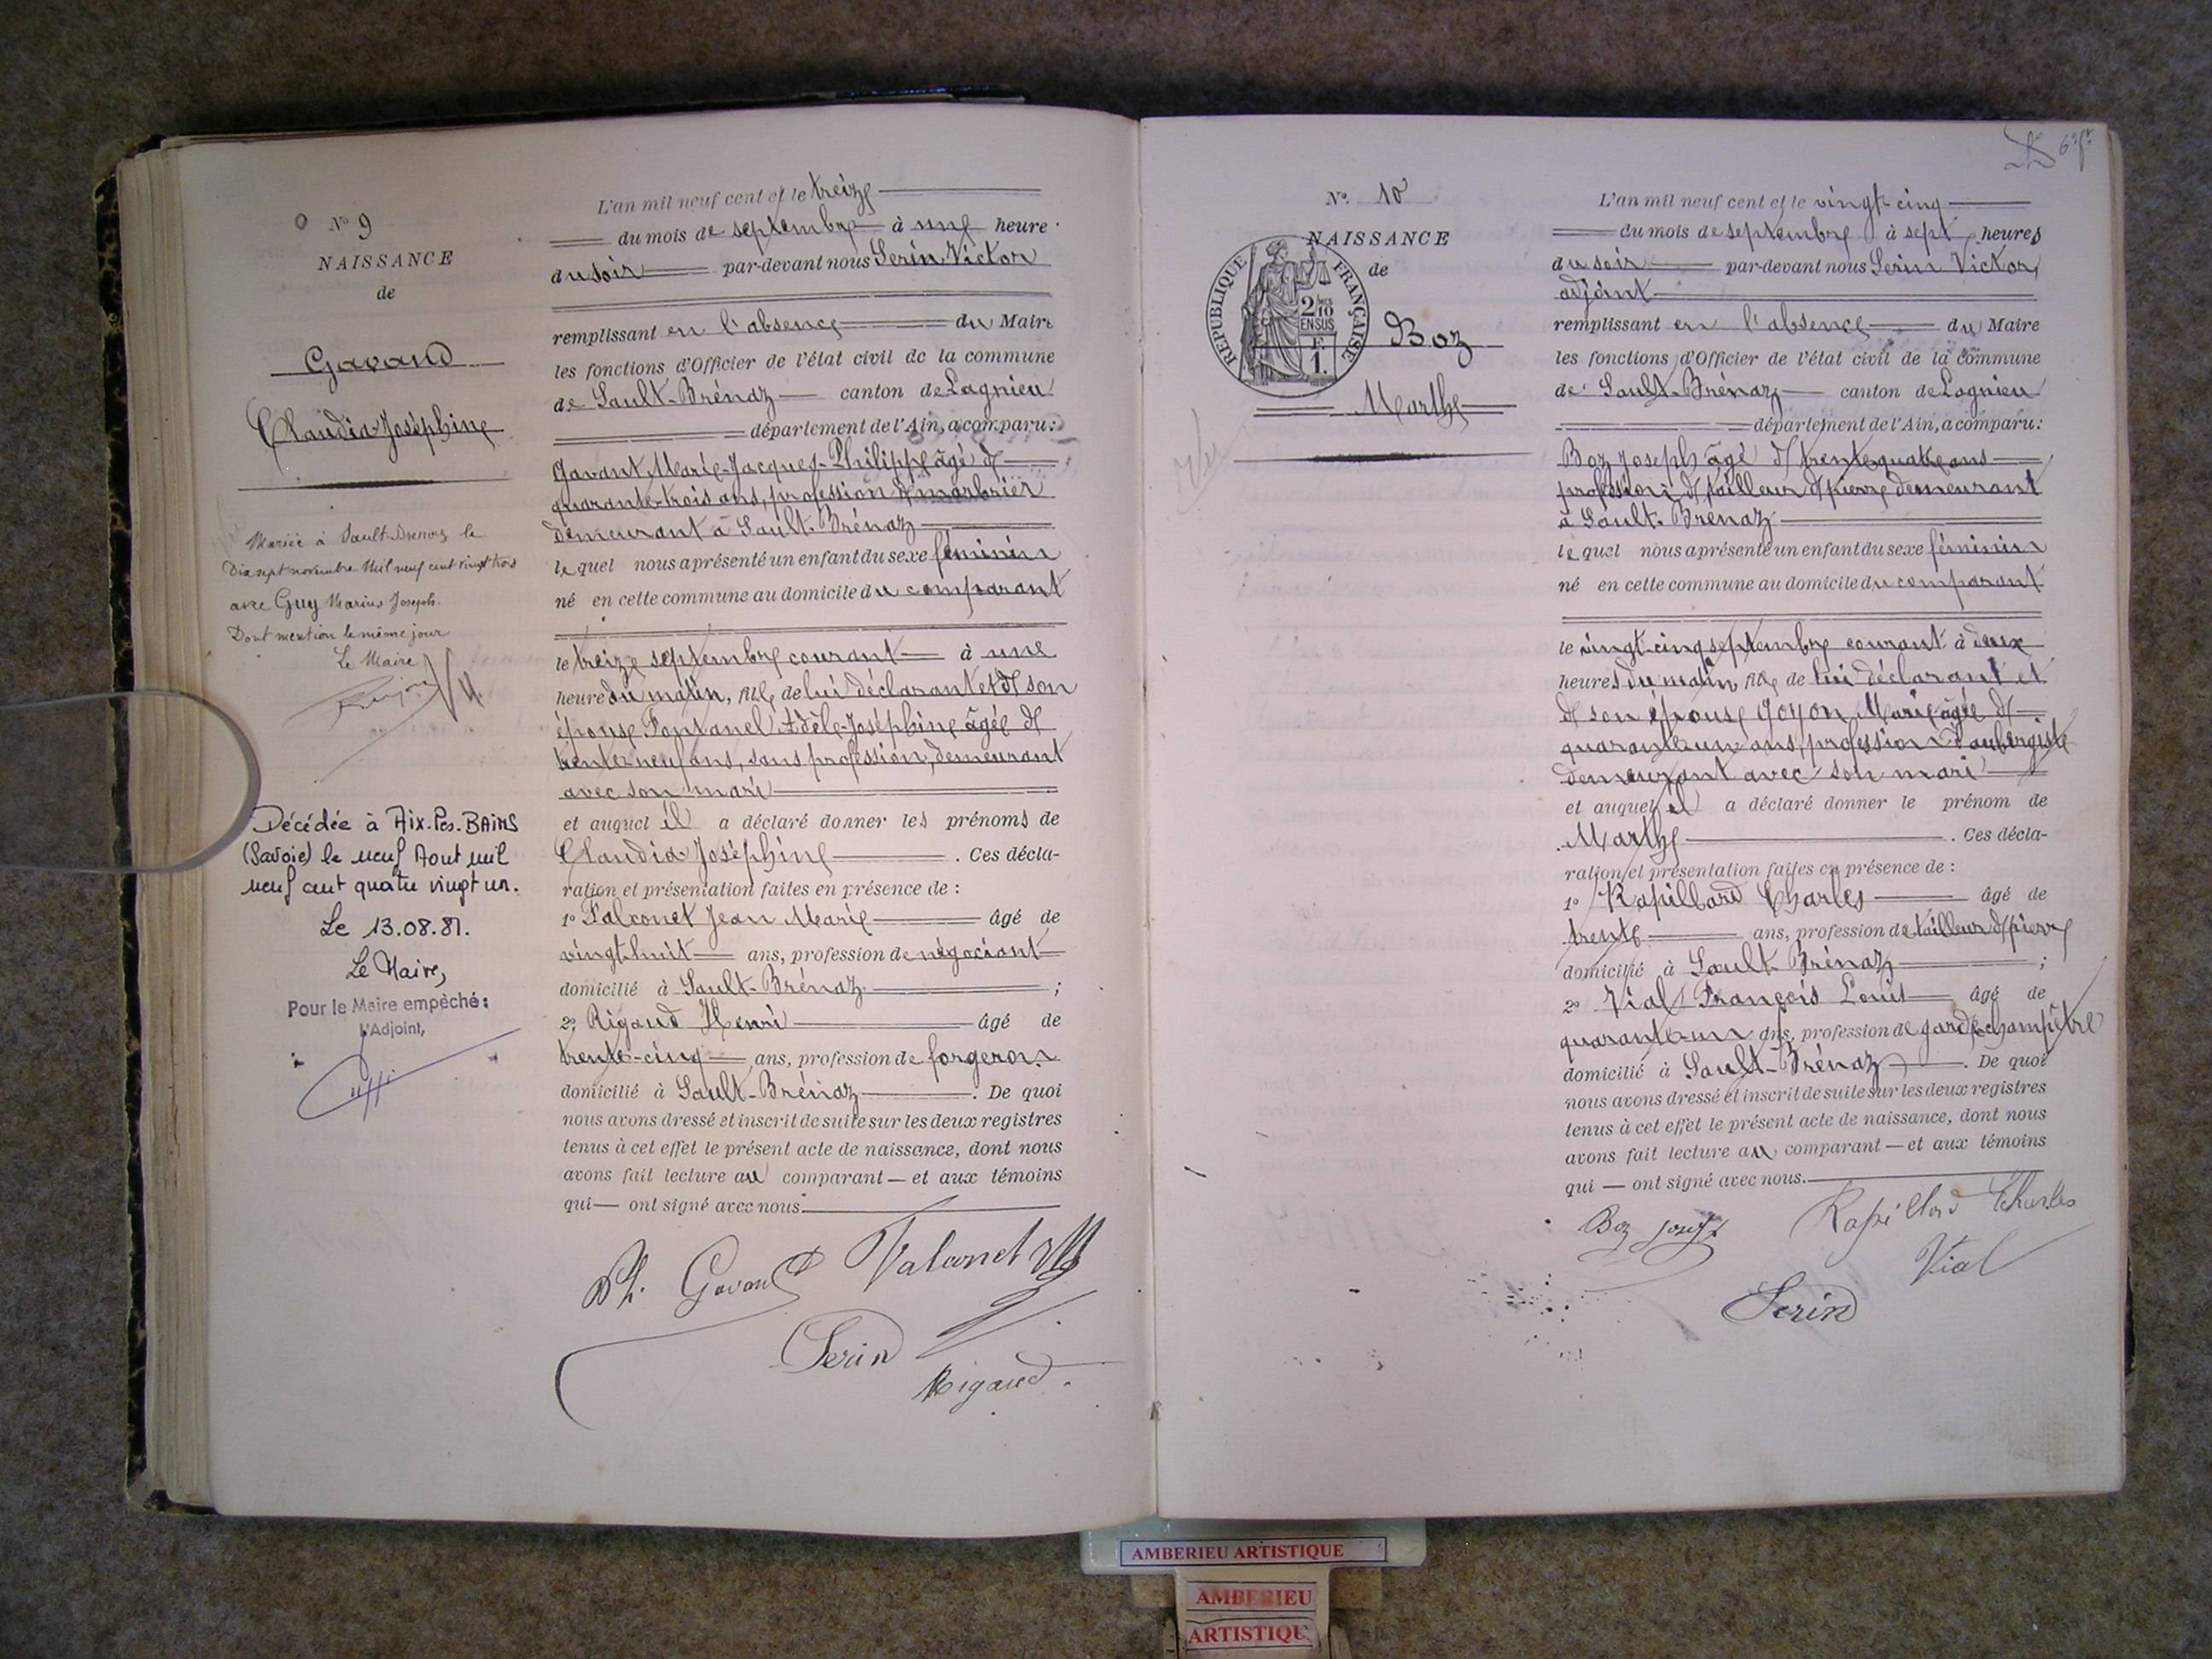 Nº 9
NAISSANCE
de
Gavand
Claudia-Joséphine
Mariée à Sault-Brenaz le
Dix sept novembre Mil neuf cent vingt trois
avec Guy Marius Joseph.
Dont mention le même jour
Le Maire
Décédée à Aix-les-BAINS
(Savoie) le neuf Aout mil
neuf cent quatre vingt un.
Le 13.08.81.
Le Maire,
Pour le Maire empêché:
L'Adjoint,
L'an mil neuf cent et le treize
du mois de septembre à une heure
du soir par-devant nous Serin Victor
remplissant en l'absence du Maire
les fonctions d'Officier de l'état civil de la commune
de Sault-Brénaz canton de Lagnieu
département de l'Ain, a comparu:
Gavant Marie-Jacques-Philippe âgé de
quarante-trois ans, profession de marbrier
demeurant à Sault-Brénaz
lequel nous a présenté un enfant du sexe féminin
né en cette commune au domicile du comparant
le treize septembre courant à une
heure du matin, fille de lui déclarant et de son
épouse Fontanel Adèle-Joséphine âgée de
trente-neuf ans, sans profession, demeurant
avec son mari
et auquel il a déclaré donner les prénoms de
Claudia Joséphine. Ces décla-
ration et présentation faites en présence de :
1º Falconet Jean Marie âgé de
vingt-huit ans, profession de négociant
domicilié à Sault-Brénaz ;
2º Rigaud Henri âgé de
trente-cinq ans, profession de forgeron
domicilié à Sault-Brénaz. De quoi
nous avons dressé et inscrit de suite sur les deux registres
tenus à cet effet le présent acte de naissance, dont nous
avons fait lecture au comparant — et aux témoins
qui — ont signé avec nous.
Ph. Gavant Falconet JM
Serin
Rigaud.
6e ft
Nº 10
NAISSANCE
de
RÉPUBLIQUE FRANÇAISE
2/10
EN SUS
1 F
Boz
Marthe
L'an mil neuf cent et le vingt-cinq
du mois de septembre à sept heures
du soir par-devant nous Serin Victor,
adjoint
remplissant en l'absence du Maire
les fonctions d'Officier de l'état civil de la commune
de Sault-Brenaz canton de Lagnieu
département de l'Ain, a comparu:
Boz Joseph âgé de trente quatre ans
profession de tailleur de pierre demeurant
à Sault-Brénaz
lequel nous a présenté un enfant du sexe féminin
né en cette commune au domicile du comparant
le vingt-cinq septembre courant à deux
heures du matin fille de lui déclarant et
de son épouse Goyon Marie âgée de
quarante un ans, profession d'aubergiste
demeurant avec son mari
et auquel il a déclaré donner le prénom de
Marthe. Ces décla-
ration et présentation faites en présence de :
1º Rapillard Charles âgé de
trente ans, profession de tailleur de pierre
domicilié à Sault-Brénaz ;
2º Vial François Louis âgé de
quarante-un ans, profession de garde champêtre
domicilié à Sault-Brénaz. De quoi
nous avons dressé et inscrit de suite sur les deux registres
tenus à cet effet le présent acte de naissance, dont nous
avons fait lecture au comparant — et aux témoins
qui — ont signé avec nous.
Boz Joseph Rapillard Charles
Vial
Serin
AMBERIEU ARTISTIQUE
AMBERIEU
ARTISTIQUE